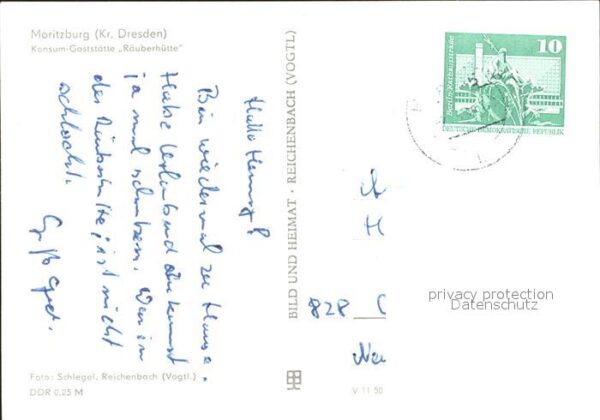 Moritzburg (Kr. Dresden)
Konsum-Gaststätte „Räuberhütte"
Hallo Henry!
Bin wieder mal zu Hause.
Habe Urlaub und du kannst
ja mal schreiben. War in
der Räuberhütte, ist nicht
schlecht.
Gruß
BILD UND HEIMAT · REICHENBACH (VOGTL)
Berlin, Rathausstraße
10
DEUTSCHE DEMOKRATISCHE REPUBLIK
H
828
privacy protection
Datenschutz
Foto: Schlegel, Reichenbach (Vogtl.)
DDR 0,25 M
V 11 50